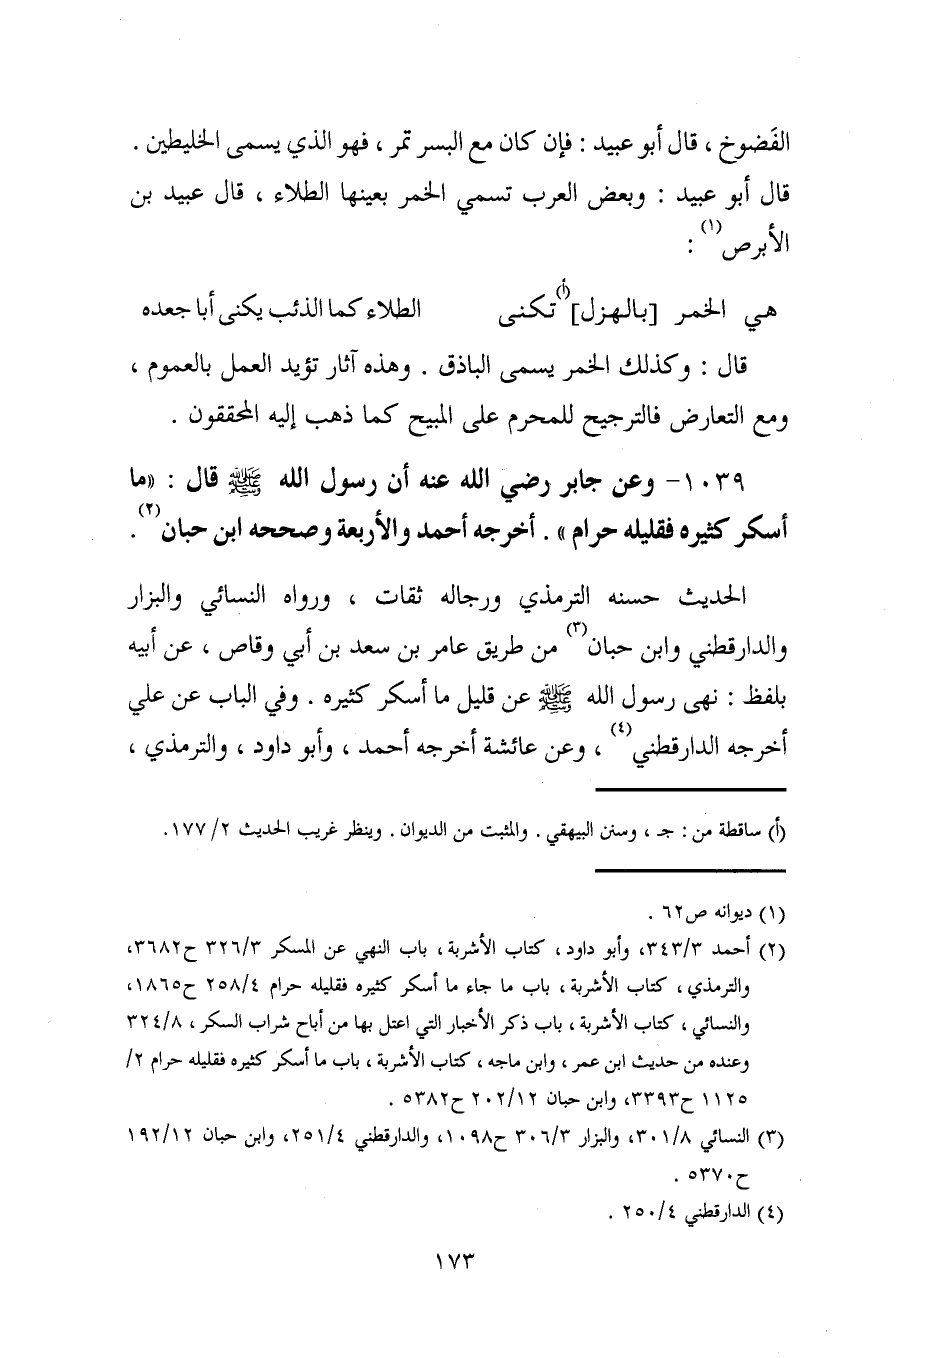 الفَضوخ ، قال أبو عبيد : فإن كان مع البسر تمر ، فهو الذي يسمى الخليطين .
قال أبو عبيد : وبعض العرب تسمي الخمر بعينها الطلاء ، قال عبيد بن
الأبرص(١) :
هي الخمر [بالهزل](أ) تكنى الطلاء كما الذئب يكنى أبا جعده
قال : وكذلك الخمر يسمى الباذق . وهذه آثار تؤيد العمل بالعموم ،
ومع التعارض فالترجيح للمحرم على المبيح كما ذهب إليه المحققون .
١٠٣٩- وعن جابر رضي الله عنه أن رسول الله ﷺ قال : «ما
أسكر كثيره فقليله حرام» . أخرجه أحمد والأربعة وصححه ابن حبان(٢).
الحديث حسنه الترمذي ورجاله ثقات ، ورواه النسائي والبزار
والدارقطني وابن حبان(٣) من طريق عامر بن سعد بن أبي وقاص ، عن أبيه
بلفظ : نهى رسول الله ﷺ عن قليل ما أسكر كثيره . وفي الباب عن علي
أخرجه الدارقطني(٤) ، وعن عائشة أخرجه أحمد ، وأبو داود ، والترمذي ،
(أ) ساقطة من : جـ ، وسنن البيهقي . والمثبت من الديوان . وينظر غريب الحديث ٢/ ١٧٧.
(١) ديوانه ص٦٢ .
(٢) أحمد ٣٤٣/٣، وأبو داود ، كتاب الأشربة ، باب النهي عن المسكر ٣٢٦/٣ ح٣٦٨٢،
والترمذي ، كتاب الأشربة ، باب ما جاء ما أسكر كثيره فقليله حرام ٢٥٨/٤ ح١٨٦٥،
والنسائي ، كتاب الأشربة ، باب ذكر الأخبار التي اعتل بها من أباح شراب السكر ، ٣٢٤/٨
وعنده من حديث ابن عمر ، وابن ماجه ، كتاب الأشربة ، باب ما أسكر كثيره فقليله حرام ٢/
١١٢٥ ح٣٣٩٣، وابن حبان ٢٠٢/١٢ ح٥٣٨٢ .
(٣) النسائي ٣٠١/٨، والبزار ٣٠٦/٣ ح١٠٩٨، والدارقطني ٢٥١/٤، وابن حبان ١٩٢/١٢
ح٥٣٧٠ .
(٤) الدارقطني ٢٥٠/٤ .
١٧٣